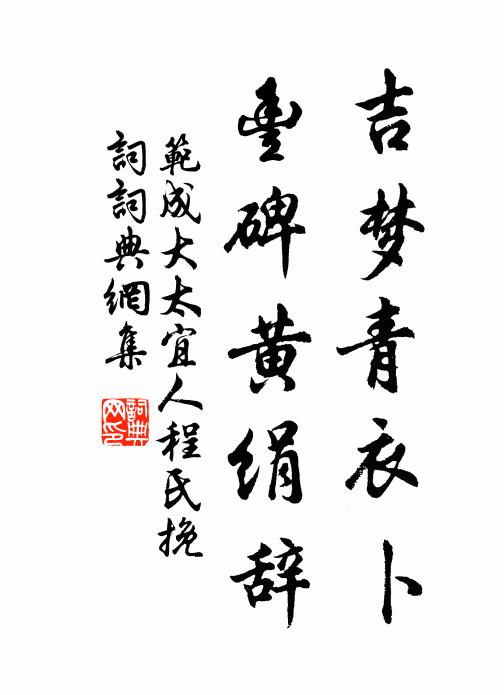 吉梦青衣卜
豊碑黄绢辞
範成大太宜人程氏挽
詞詞典網集
詞典网印